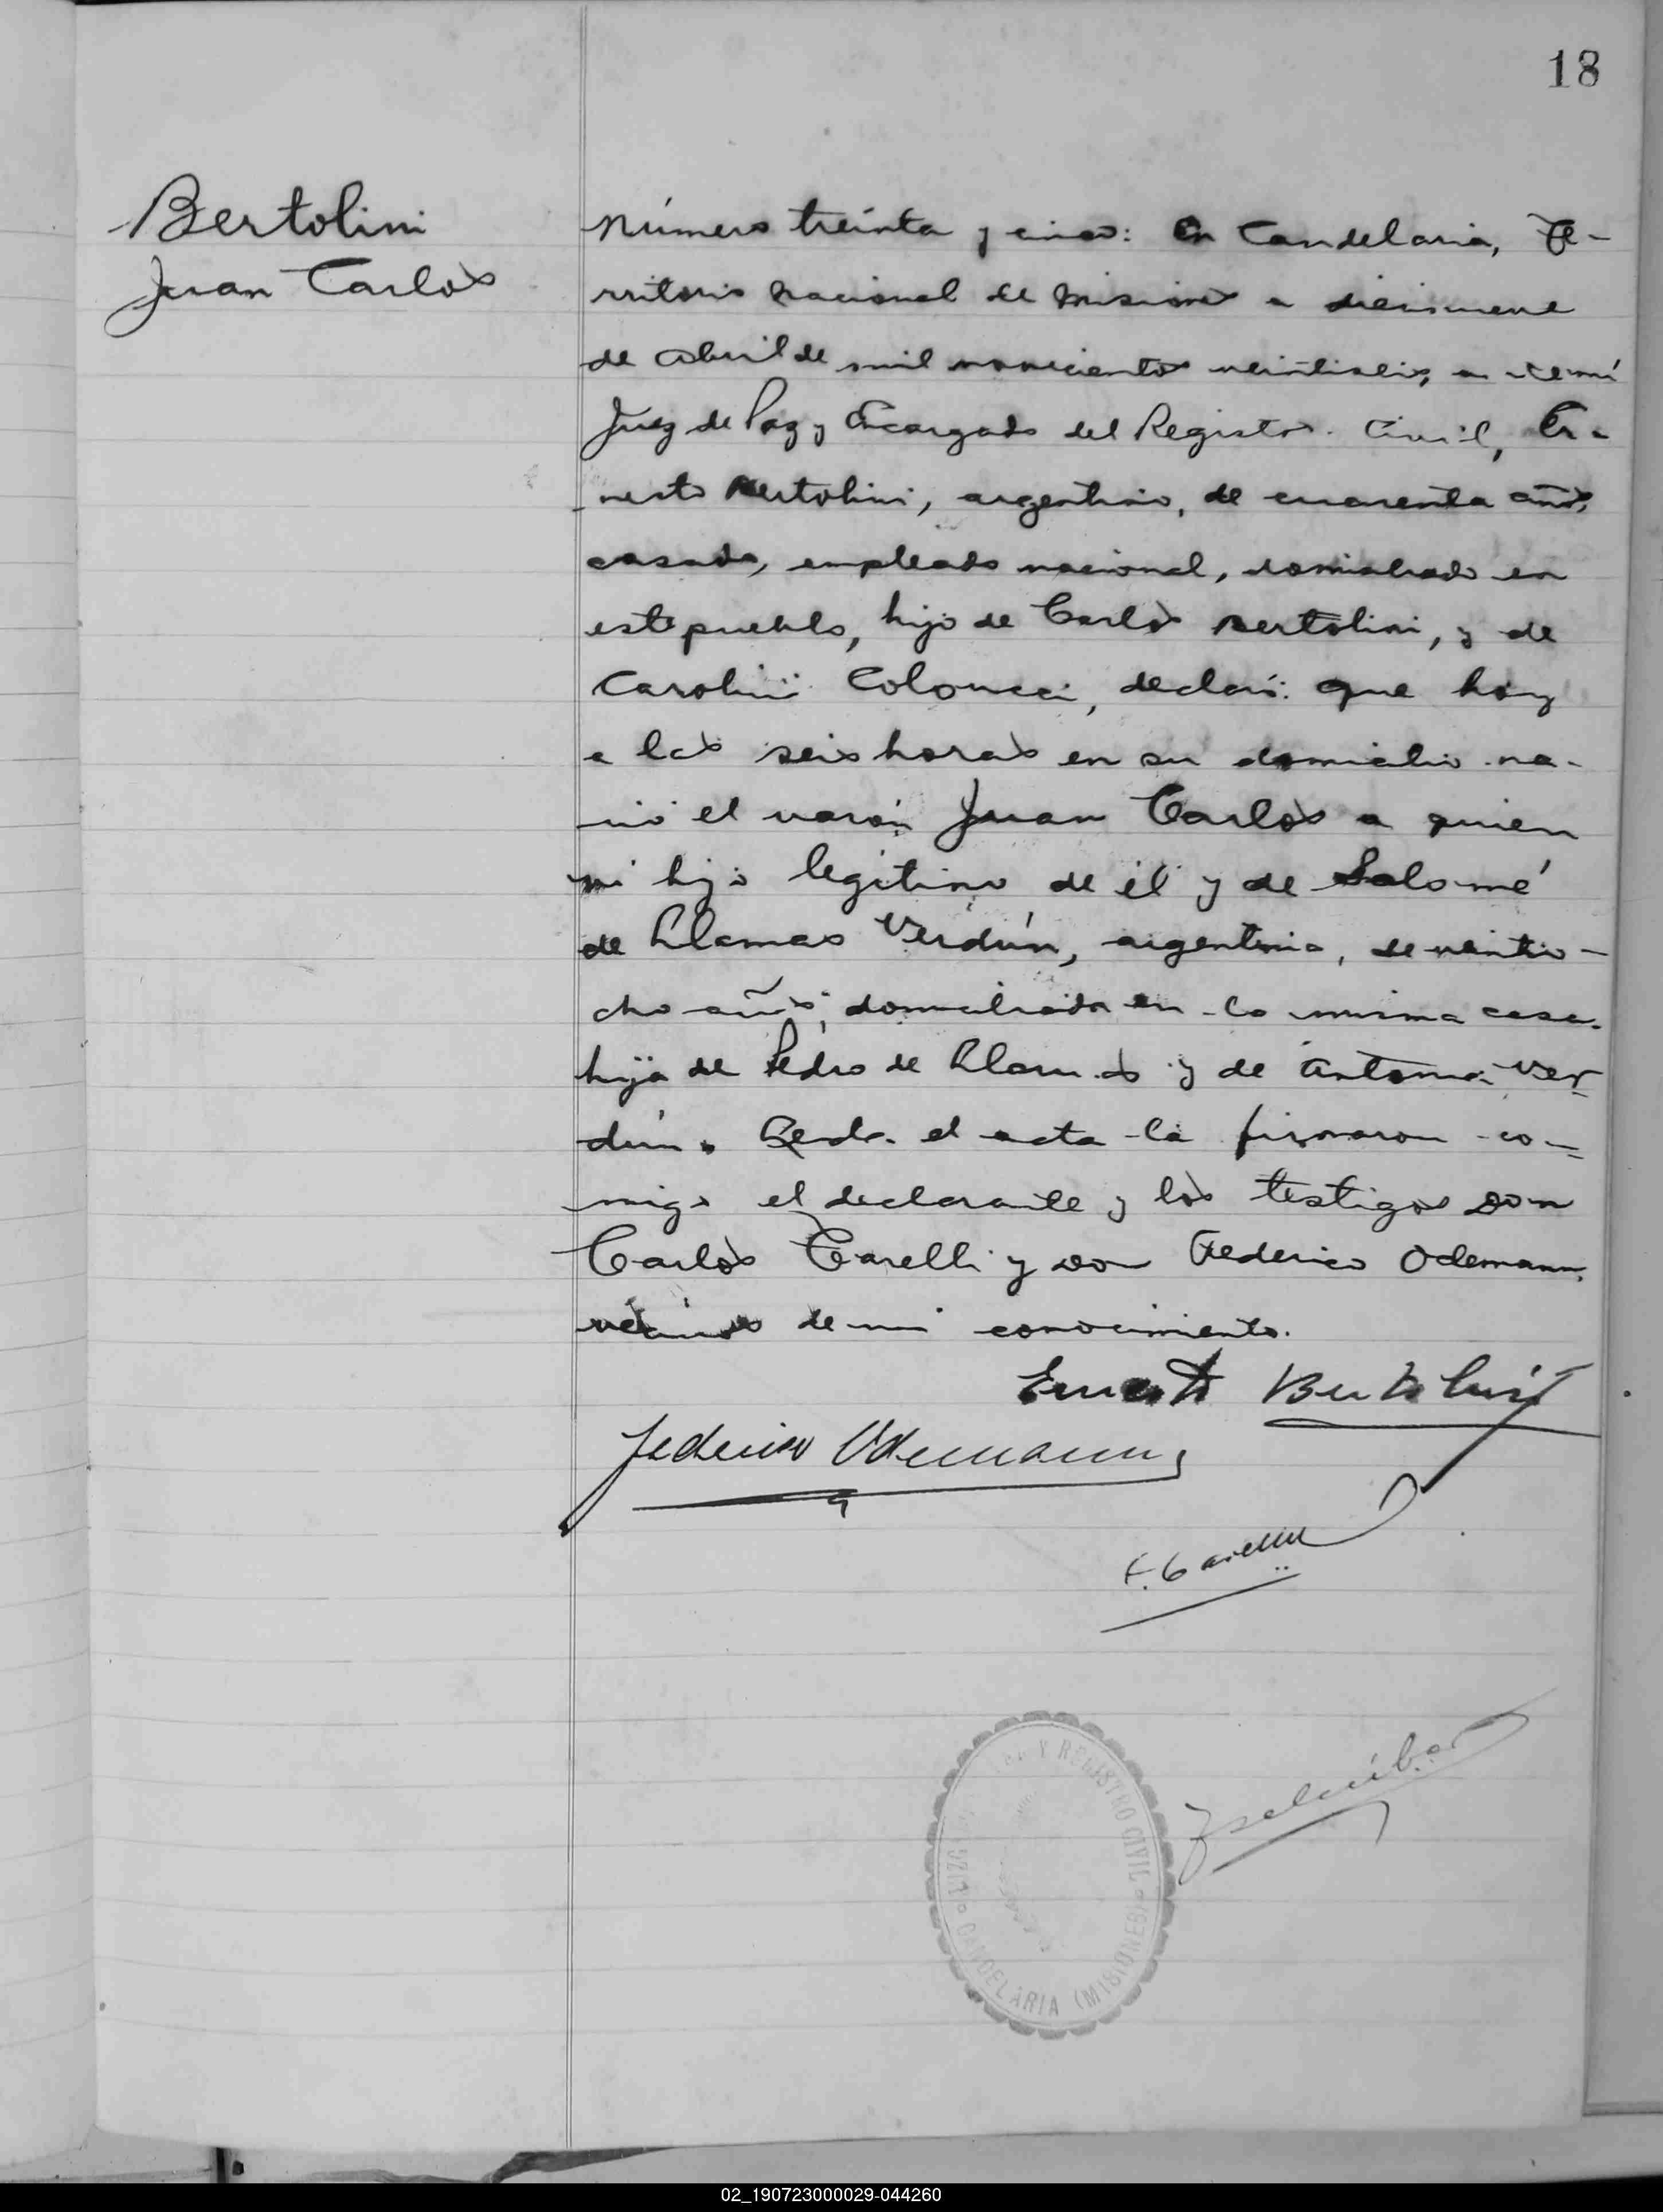 18
Bertolini
Juan Carlos
Número treinta y cinco: En Candelaria, Te-
rritorio Nacional de Misiones a diecinueve
de Abril de mil novecientos veintiseis, ante mí
Juez de Paz y Encargado del Registro Civil, Er-
nesto Bertolini, argentino, de cuarenta años,
casado, empleado nacional, domiciliado en
este pueblo, hijo de Carlos Bertolini, y de
Carolina, declaró: que hoy
a las seis horas en su domicilio na-
ció el varón Juan Carlos a quien
vi hijo legítimo de él y de Salomé
de Llamas Verdún, argentina, de veintio-
cho años, domiciliada en la misma casa
hija de Pedro de Llamas y de Antonia Ver-
dún. Leida el acta la firmaron co-
migo el declarante y los testigos Don
Carlos Carelli y Don Federico Odemann,
vecinos de mi conocimiento.
Ernesto Bertolini
Federico Odemann
C. Carelli
Y REGISTRO CIVIL
CANDELARIA (MISIONES)
02_190723000029-044260